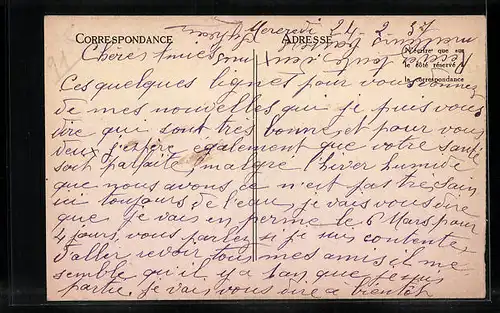 Mercredi 24-2-37
CORRESPONDANCE
ADRESSE
N'écrire que sur
le côté réservé à
la correspondance
Chères
Ces quelques lignes pour vous donner
de mes nouvelles que je puis vous
dire qui sont très bonne, et pour vous
deux j'espère egalement que votre santé
soit parfaite, malgré l'hiver humide
que nous avons ce n'ait pas très sain
ici toujours de l'eau, je vais vous dire
que je vais en perme le 6 Mars pour
4 jours, vous parlez si je suis contente
d'aller revoir tous mes amis il me
semble qu'il y a 1 an que je suis
partie. je vais vous dire a bientôt